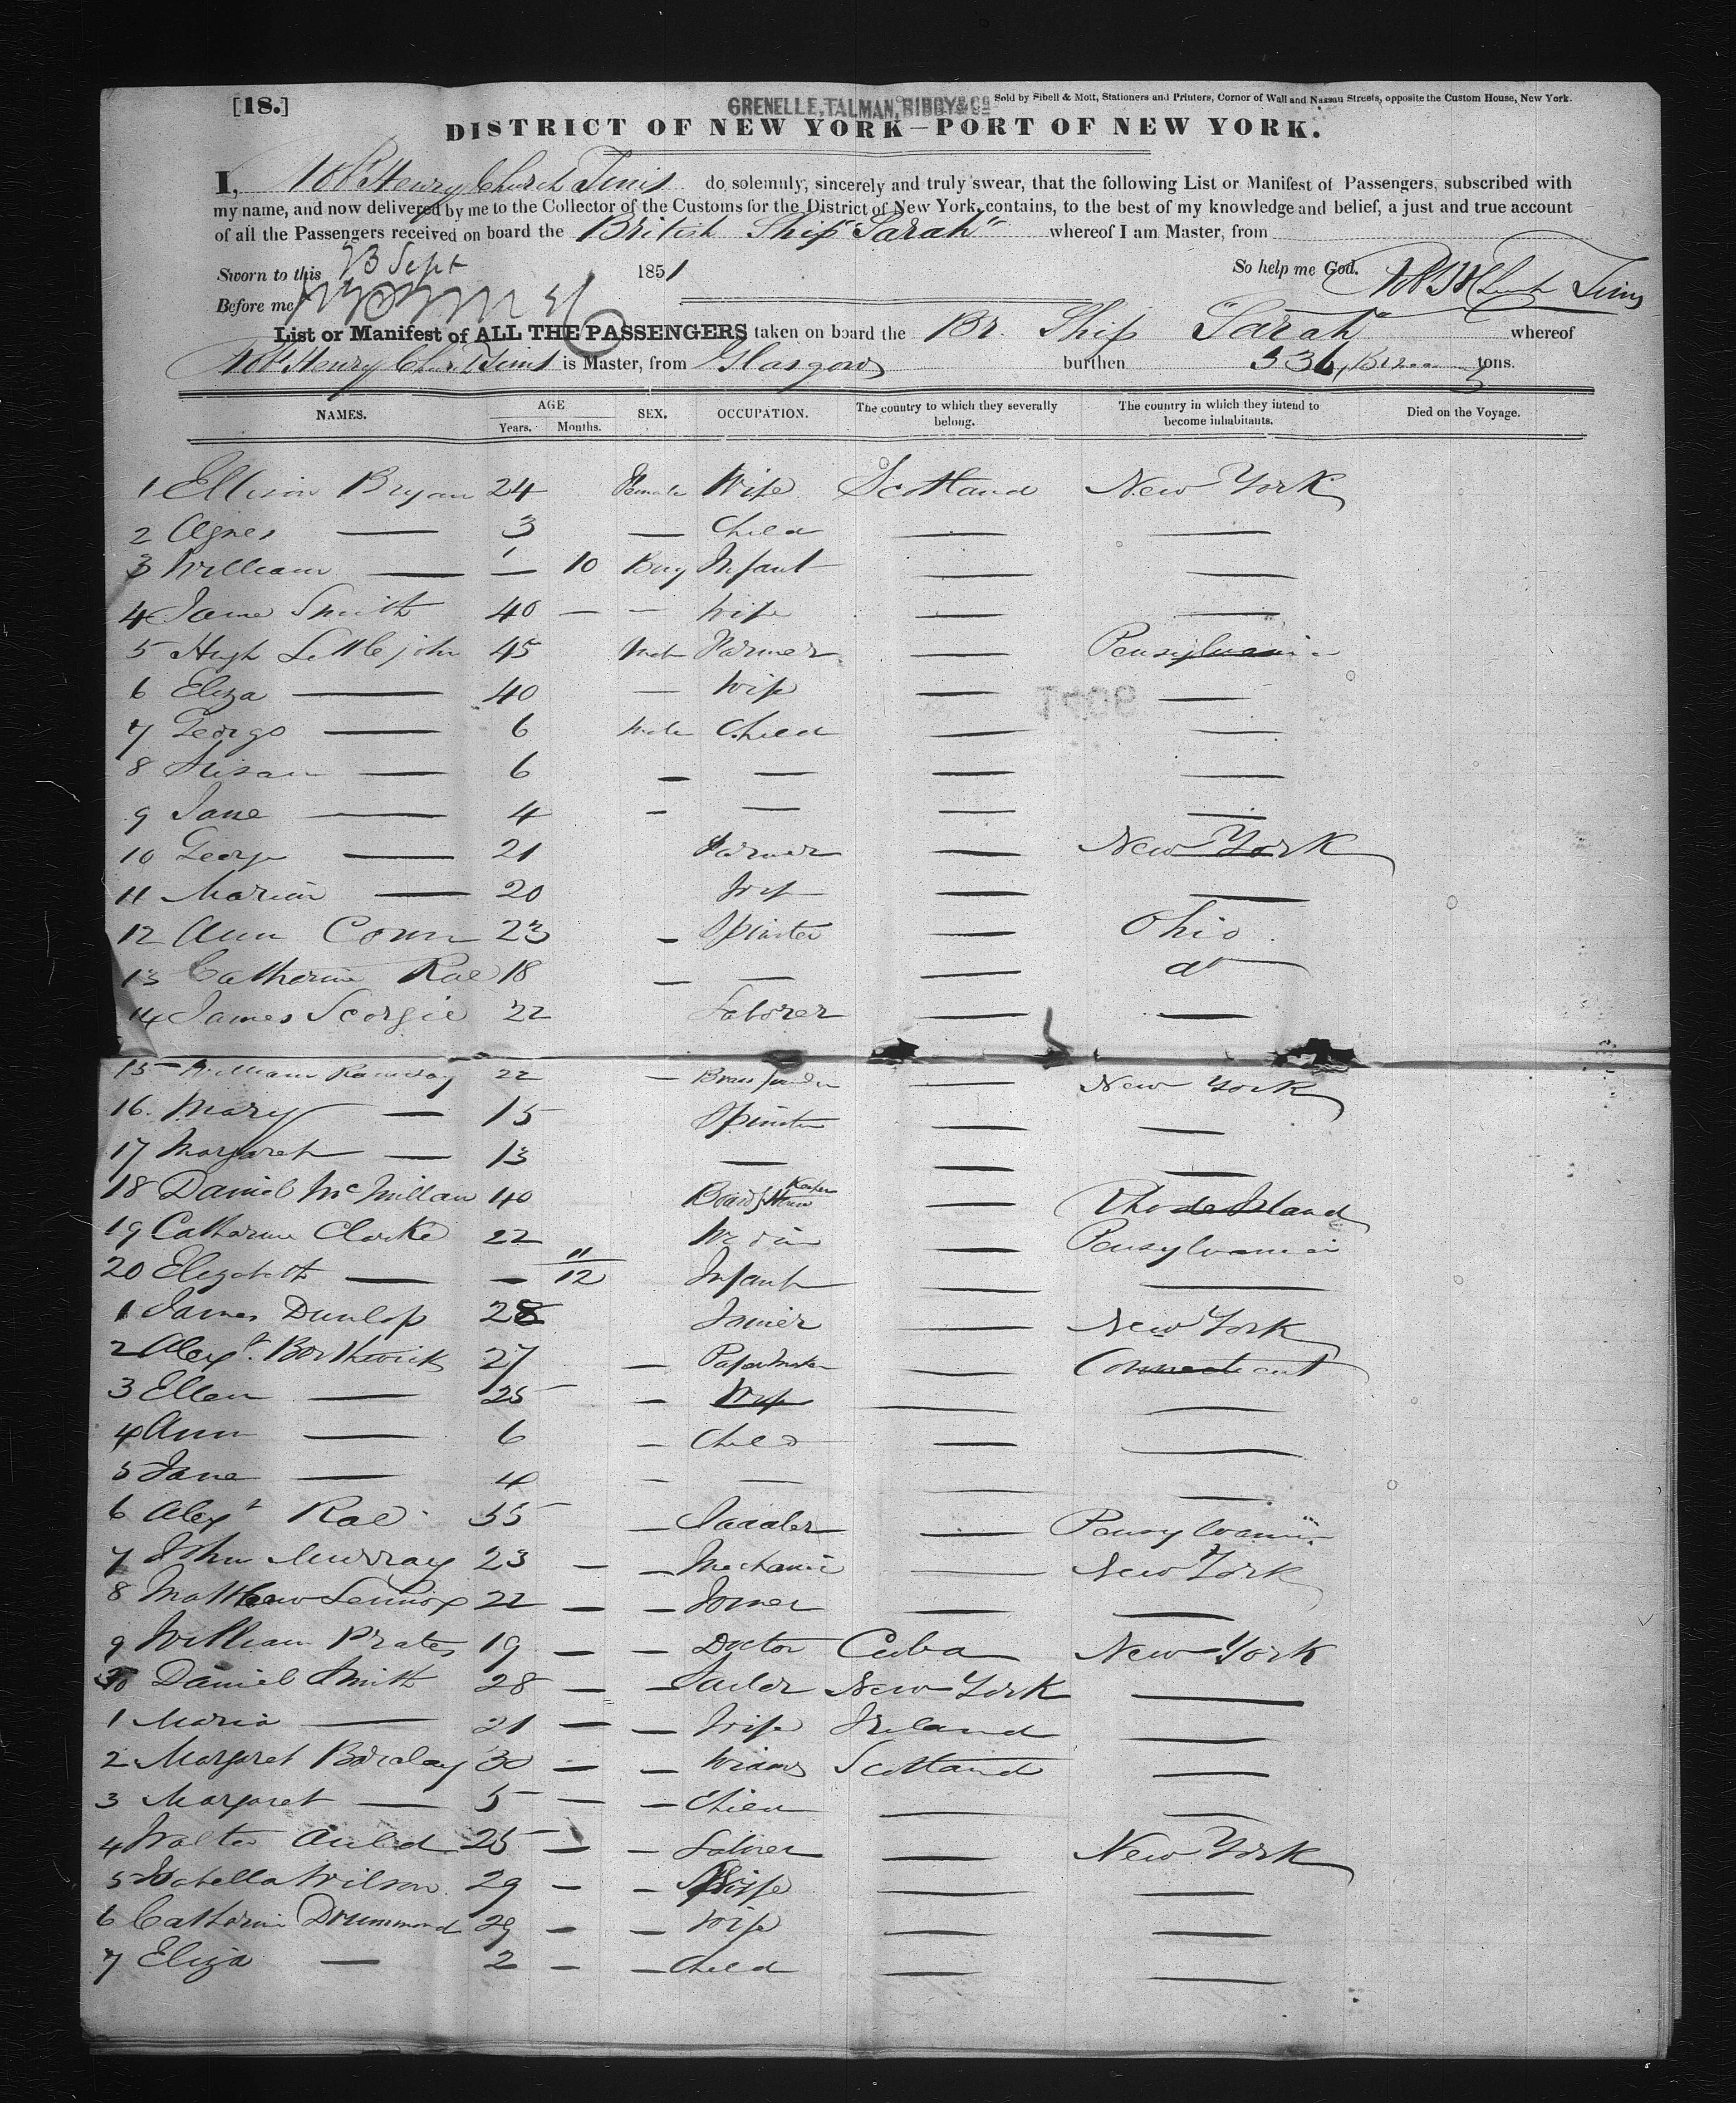 [18.]
GRENELLE, TALMAN, BIBBY & Co
Sold by Sibell & Mott, Stationers and Printers, Corner of Wall and Nassau Streets, opposite the Custom House, New York.
DISTRICT OF NEW YORK—PORT OF NEW YORK.
I, Robt Henry Church Tims do solemnly, sincerely and truly swear, that the following List or Manifest of Passengers, subscribed with
my name, and now delivered by me to the Collector of the Customs for the District of New York, contains, to the best of my knowledge and belief, a just and true account
of all the Passengers received on board the British Ship "Sarah" whereof I am Master, from
Sworn to this 23 Sept 1851 So help me God. Robt H Church Tims
Before me
List or Manifest of ALL THE PASSENGERS taken on board the Br. Ship "Sarah" whereof
Robt Henry Church Tims is Master, from Glasgow burthen 536 tons.
NAMES. AGE Years. Months. SEX. OCCUPATION. The country to which they severally belong. The country in which they intend to become inhabitants. Died on the Voyage.
1 Ellison Bryan 24 Female Wife Scotland New York
2 Agnes — 3 — Child — —
3 William — — 10 Boy Infant — —
4 Jane Smith 40 — — Wife — —
5 Hugh Littlejohn 45 Male Farmer — Pensylvania
6 Eliza — 40 — Wife — —
7 George — 6 Male Child — —
8 — 6 — — — —
9 Jane — 4 — — — —
10 George — 21 Farmer — New York
11 Marion — 20 Wife — —
12 Ann Conn 23 — Spinster — Ohio
13 Catherine Rae 18 — — — do
14 James Scorgie 22 Laborer — —
15 William Ramsay 22 — Brass founder — New York
16. Mary — 15 Spinster — —
17 Margaret — 13 — — —
18 Daniel McMillan 40 Board House Keeper — Rhode Island
19 Catherine Clarke 22 Widow — Pensylvania
20 Elizabeth — — 11/12 Infant — —
1 James Dunlop 28 Joiner — New York
2 Alexr. Borthwick 27 — Paper maker — Connecticut
3 Ellen — 25 — Wife — —
4 Ann — 6 — Child — —
5 Jane — 4 — — — —
6 Alexr Rae 55 — Saddler — Pensylvania
7 John Murray 23 — — Mechanic — New York
8 Matthew Lennox 22 — — Joiner — —
9 William Prates 19 — — Doctor Cuba New York
30 Daniel Smith 28 — — Sailor New York —
1 Maria — 21 — — Wife Ireland —
2 Margaret Barclay 30 — — Widow Scotland —
3 Margaret — 5 — — Child — —
4 Walter Auld 25 — — Laborer — New York
5 Isabella Wilson 29 — — Wife — —
6 Catherine Drummond 29 — — Wife — —
7 Eliza — 2 — — Child — —